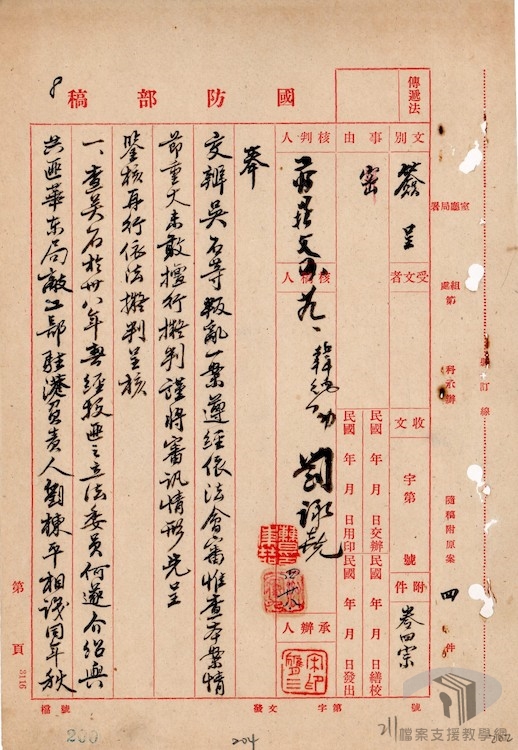 國防部稿
傳遞法
文別
簽呈
事由
密
受文者
核判人
蔣鼎文
核稿人
韓德勤
劉詠堯
收文
字第
號
附件
卷四宗
民國 年 月 日交辦
民國 年 月 日繕校
民國 年 月 日用印
民國 年 月 日發出
承辦人
室廳局署
組處
第
科承辦
隨稿附原案
四
件
裝訂線
奉
交辦吳石等叛亂一案遵經依法會審惟查本案情
節重大未敢擅行擬判謹將審訊情形先呈
鑒核再行依法擬判呈核
一、查吳石於卅八年春經投匪之立法委員何遂介紹與
共匪華东局敵工部駐港負責人劉棟平相識同年秋
第 頁
3116
檔號
發文 字第 號
200
204
檔案支援教學網